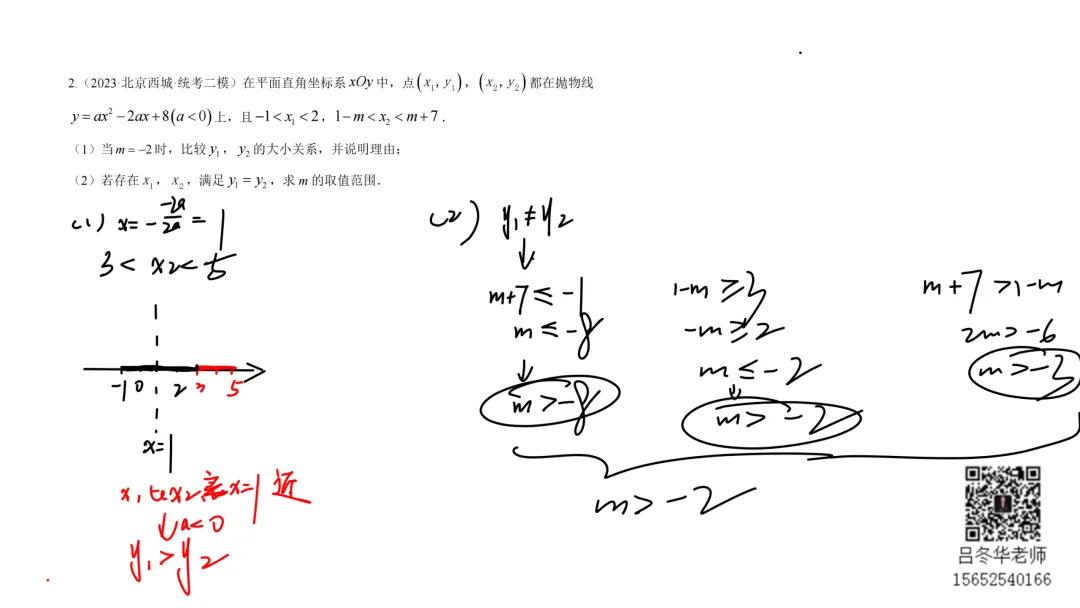 2.（2023·北京西城·统考二模）在平面直角坐标系 xOy 中，点 (x₁, y₁)，(x₂, y₂) 都在抛物线
y = ax² − 2ax + 8(a < 0) 上，且 −1 < x₁ < 2，1 − m < x₂ < m + 7．
（1）当 m = −2 时，比较 y₁，y₂ 的大小关系，并说明理由；
（2）若存在 x₁，x₂，满足 y₁ = y₂，求 m 的取值范围．
(1) x = − −2a/2a = 1
3 < x2 < 5
-1 0 2 3 5
x=1
x1比x2离x=1近
↓a<0
y1>y2
(2) y1≠y2
↓
m+7 ≤ -1
m ≤ -8
↓
m > -8
1-m ≥ 3
-m ≥ 2
m ≤ -2
↓
m > -2
m+7 > 1-m
2m > -6
m > -3
m > -2
吕冬华老师
15652540166